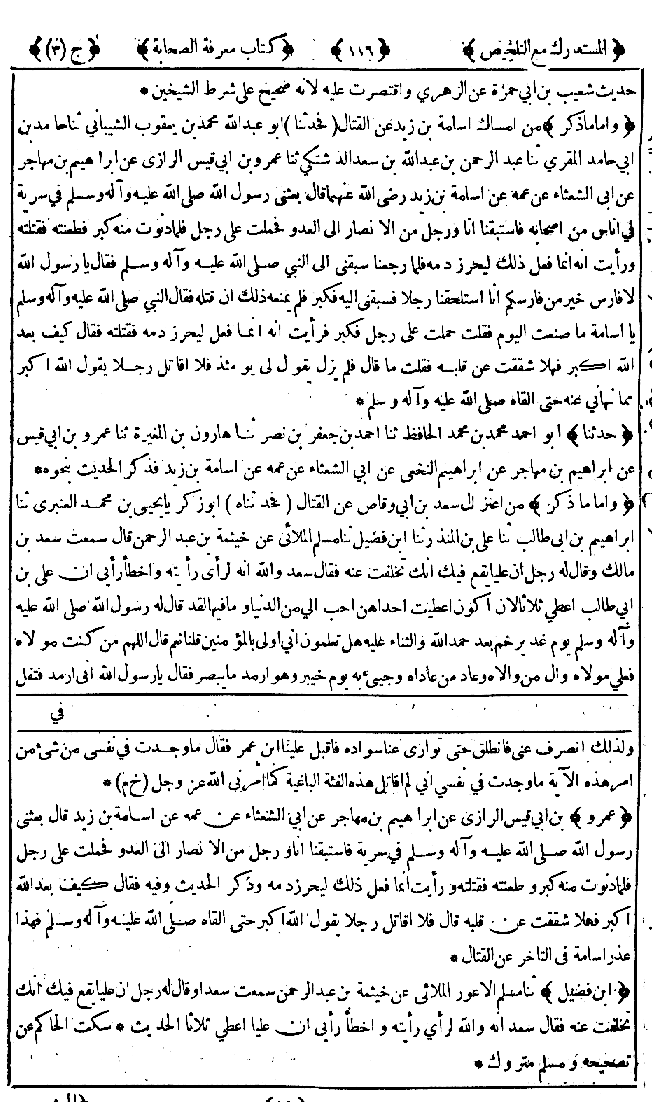 ﴿ المستدرك مع التلخيص ﴾ ﴿ ١١٦ ﴾ ﴿ كتاب معرفة الصحابة ﴾ ﴿ ج (٣) ﴾
حديث شعيب بن ابي حمزة عن الزهري و اقتصرت عليه لانه صحيح على شرط الشيخين *
﴿ و اما ما ذكر ﴾ من امساك اسامة بن زيد عن القتال ( فحدثنا ) ابو عبدالله محمد بن يعقوب الشيباني ثنا حامد بن
ابي حامد المقري ثنا عبد الرحمن بن عبدالله بن سعد الدشتكي ثنا عمرو بن ابي قيس الرازى عن ابراهيم بن مهاجر
عن ابى الشعثاء عن عمه عن اسامة بن زيد رضى الله عنهما قال بعثنى رسول الله صلى الله عليه وآله وسلم في سرية
في اناس من اصحابه فاستبقنا انا ورجل من الا نصار الى العدو فحملت على رجل فلما دنوت منه كبر فطعنته فقتلته
ورأيت انه انما فعل ذلك ليحرز دمه فلما رجعنا سبقنى الى النبي صلى الله عليه وآله وسلم فقال يا رسول الله
لا فارس خير من فارسكم انا استلحقنا رجلا فسبقنى اليه فكبر فلم يمنعه ذلك ان قتله فقال النبي صلى الله عليه وآله وسلم
يا اسامة ما صنعت اليوم فقلت حملت على رجل فكبر فرأيت انه انما فعل ليحرز دمه فقتلته فقال كيف بعد
الله اكبر فهلا شققت عن قلبه فقلت ما قال فلم يزل يقول لى يو مئذ فلا اقاتل رجلا يقول الله اكبر
مما نهاني عنه حتى القاه صلى الله عليه وآله وسلم *
﴿ حدثنا ﴾ ابو احمد محمد بن محمد الحافظ ثنا احمد بن جعفر بن نصر ثنا هارون بن المغيرة ثنا عمرو بن ابي قيس
عن ابراهيم بن مهاجر عن ابراهيم النخعى عن ابي الشعثاء عن عمه عن اسامة بن زيد فذكر الحديث بنحوه *
﴿ و اما ما ذكر ﴾ من اعتزال سعد بن ابي وقاص عن القتال ( فحد ثناه ) ابو زكر يا يحيى بن محمد العنبرى ثنا
ابراهيم بن ابى طالب ثنا على بن المنذر ثنا ابن فضيل ثنا مسلم الملائى عن خيثمة بن عبد الرحمن قال سمعت سعد بن
مالك وقال له رجل ان عليا يقع فيك انك تخلفت عنه فقال سعد والله انه لرأى رأيته و اخطأ رأيى ان على بن
ابي طالب اعطي ثلاثا لان اكون اعطيت احداهن احب الي من الدنيا و ما فيها لقد قال له رسول الله صلى الله عليه
وآله وسلم يوم غد يرخم بعد حمدالله والثناء عليه هل تعلمون اني اولى بالمؤ منين قلنا نعم قال اللهم من كنت مو لاه
فعلي مولاه وال من والاه وعاد من عاداه وجيئ به يوم خيبر وهو ارمد ما يبصر فقال يا رسول الله انى ارمد فتفل
في
ولذلك انصرف عنى فانطلق حتى توارى عنا سواده فاقبل علينا ابن عمر فقال ما وجدت في نفسى من شئ من
امر هذه الآية ما وجدت في نفسي اني لم اقاتل هذه الفئة الباغية كما امرنى الله عز وجل ( خ م ) *
﴿ عمرو ﴾ بن ابي قيس الرازى عن ابراهيم بن مهاجر عن ابي الشعثاء عن عمه عن اسامة بن زيد قال بعثنى
رسول الله صلى الله عليه وآله وسلم في سرية فاستبقنا انا و رجل من الا نصار الى العدو فحملت على رجل
فلما دنوت منه كبر و طعنته فقتلته و رأيت انما فعل ذلك ليحرز دمه وذكر الحديث وفيه فقال كيف بعد الله
اكبر فهلا شققت عن قلبه قال فلا اقاتل رجلا يقول الله اكبر حتى القاه صلى الله عليه وآله وسلم فهذا
عذر اسامة فى التاخر عن القتال *
﴿ ابن فضيل ﴾ ثنا مسلم الاعور الملائى عن خيثمة بن عبد الرحمن سمعت سعدا و قال له رجل ان عليا يقع فيك انك
تخلفت عنه فقال سعد انه والله لرأي رأيته و اخطأ رأيى ان عليا اعطي ثلاثا الحديث * سكت الحاكم عن
تصحيحه و مسلم متروك *